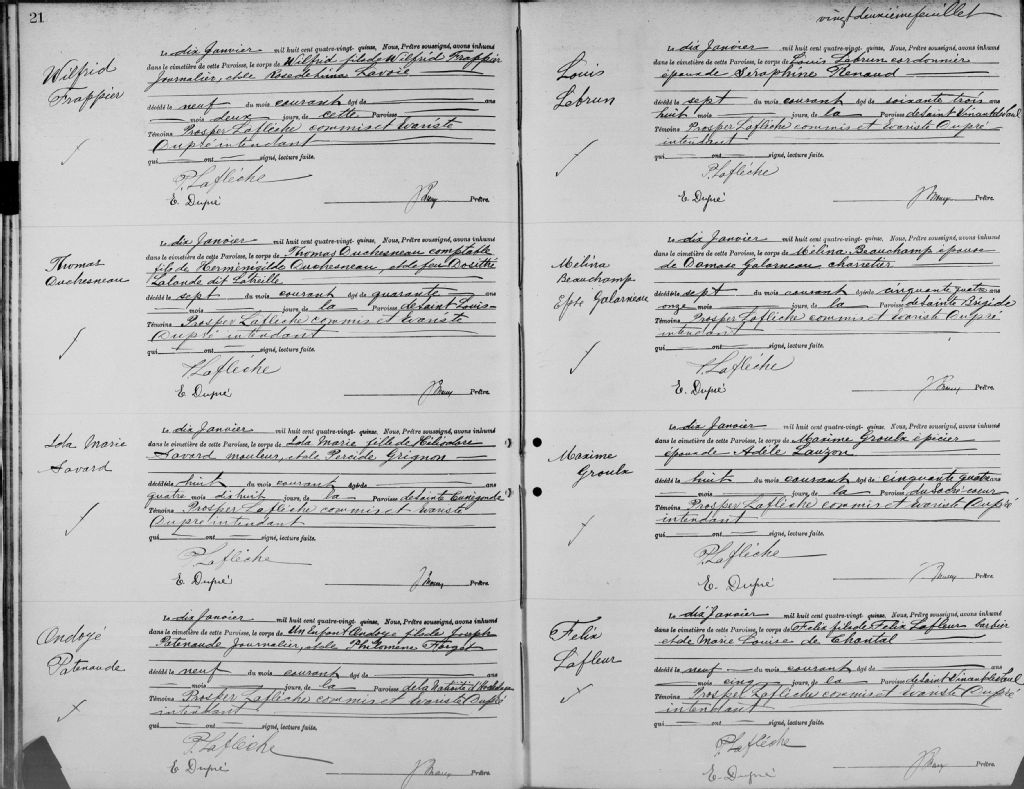 21
Wilfrid
Frappier
Le dix Janvier mil huit cent quatre-vingt- quinze, Nous, Prêtre soussigné, avons inhumé
dans le cimetière de cette Paroisse, le corps de Wilfrid fils de Wilfrid Frappier
Journalier, et de Rose de Lima Lavoie
décédé le neuf du mois courant âgé de ans
mois deux jours, de cette Paroisse
Témoins Prosper Laflèche commis et Evariste
Dupré intendant
qui ont signé, lecture faite.
P. Laflèche
E. Dupré
Prêtre.
Thomas
Duchesneau
Le dix Janvier mil huit cent quatre-vingt- quinze, Nous, Prêtre soussigné, avons inhumé
dans le cimetière de cette Paroisse, le corps de Thomas Duchesneau comptable
fils de Herménégilde Duchesneau, et de feu Dosithée
Lalonde dit Latreille
décédé le sept du mois courant âgé de quarante ans
mois jours, de la Paroisse de Saint Louis
Témoins Prosper Laflèche commis et Evariste
Dupré intendant
qui ont signé, lecture faite.
P. Laflèche
E. Dupré
Prêtre.
Lola Marie
Savard
Le dix Janvier mil huit cent quatre-vingt- quinze, Nous, Prêtre soussigné, avons inhumé
dans le cimetière de cette Paroisse, le corps de Lola Marie fille de Héliodore
Savard mouleur, et de Percide Grignon
décédé le huit du mois courant âgé de ans
quatre mois dixhuit jours, de la Paroisse de Sainte Cunégonde
Témoins Prosper Laflèche commis et Evariste
Dupré intendant
qui ont signé, lecture faite.
P. Laflèche
E. Dupré
Prêtre.
Ondoyé
Patenaude
Le dix Janvier mil huit cent quatre-vingt- quinze, Nous, Prêtre soussigné, avons inhumé
dans le cimetière de cette Paroisse, le corps de Un Enfant Ondoyé fils de Joseph
Patenaude Journalier, et de Philomène Forget
décédé le neuf du mois courant âgé de ans
mois jours, de la Paroisse de la Nativité d'Hochelaga
Témoins Prosper Laflèche commis et Evariste Dupré
intendant
qui ont signé, lecture faite.
P. Laflèche
E. Dupré
Prêtre.
vingt deuxième feuillet
Louis
Lebrun
Le dix Janvier mil huit cent quatre-vingt- quinze, Nous, Prêtre soussigné, avons inhumé
dans le cimetière de cette Paroisse, le corps de Louis Lebrun cordonnier
époux de Séraphine Renaud
décédé le sept du mois courant âgé de soixante trois ans
huit mois jours, de la Paroisse de Saint Vincent de Paul
Témoins Prosper Laflèche commis et Evariste Dupré
intendant
qui ont signé, lecture faite.
P. Laflèche
E. Dupré
Prêtre.
Mélina
Beauchamp
Epse Galarneau
Le dix Janvier mil huit cent quatre-vingt- quinze, Nous, Prêtre soussigné, avons inhumé
dans le cimetière de cette Paroisse, le corps de Mélina Beauchamp épouse
de Damase Galarneau charretier
décédé le sept du mois courant âgé de cinquante quatre ans
onze mois jours, de la Paroisse de Sainte Brigide
Témoins Prosper Laflèche commis et Evariste Dupré
intendant
qui ont signé, lecture faite.
P. Laflèche
E. Dupré
Prêtre.
Maxime
Groulx
Le dix Janvier mil huit cent quatre-vingt- quinze, Nous, Prêtre soussigné, avons inhumé
dans le cimetière de cette Paroisse, le corps de Maxime Groulx épicier
époux de Adèle Lauzon
décédé le huit du mois courant âgé de cinquante quatre ans
mois jours, de la Paroisse du Sacré-coeur
Témoins Prosper Laflèche commis et Evariste Dupré
intendant
qui ont signé, lecture faite.
P. Laflèche
E. Dupré
Prêtre.
Felix
Lafleur
Le dix Janvier mil huit cent quatre-vingt- quinze, Nous, Prêtre soussigné, avons inhumé
dans le cimetière de cette Paroisse, le corps de Felix fils de Felix Lafleur barbier
et de Marie Louise de Chantal
décédé le neuf du mois courant âgé de ans
mois cinq jours, de la Paroisse de Saint Vincent de Paul
Témoins Prosper Laflèche commis et Evariste Dupré
intendant
qui ont signé, lecture faite.
P. Laflèche
E. Dupré
Prêtre.